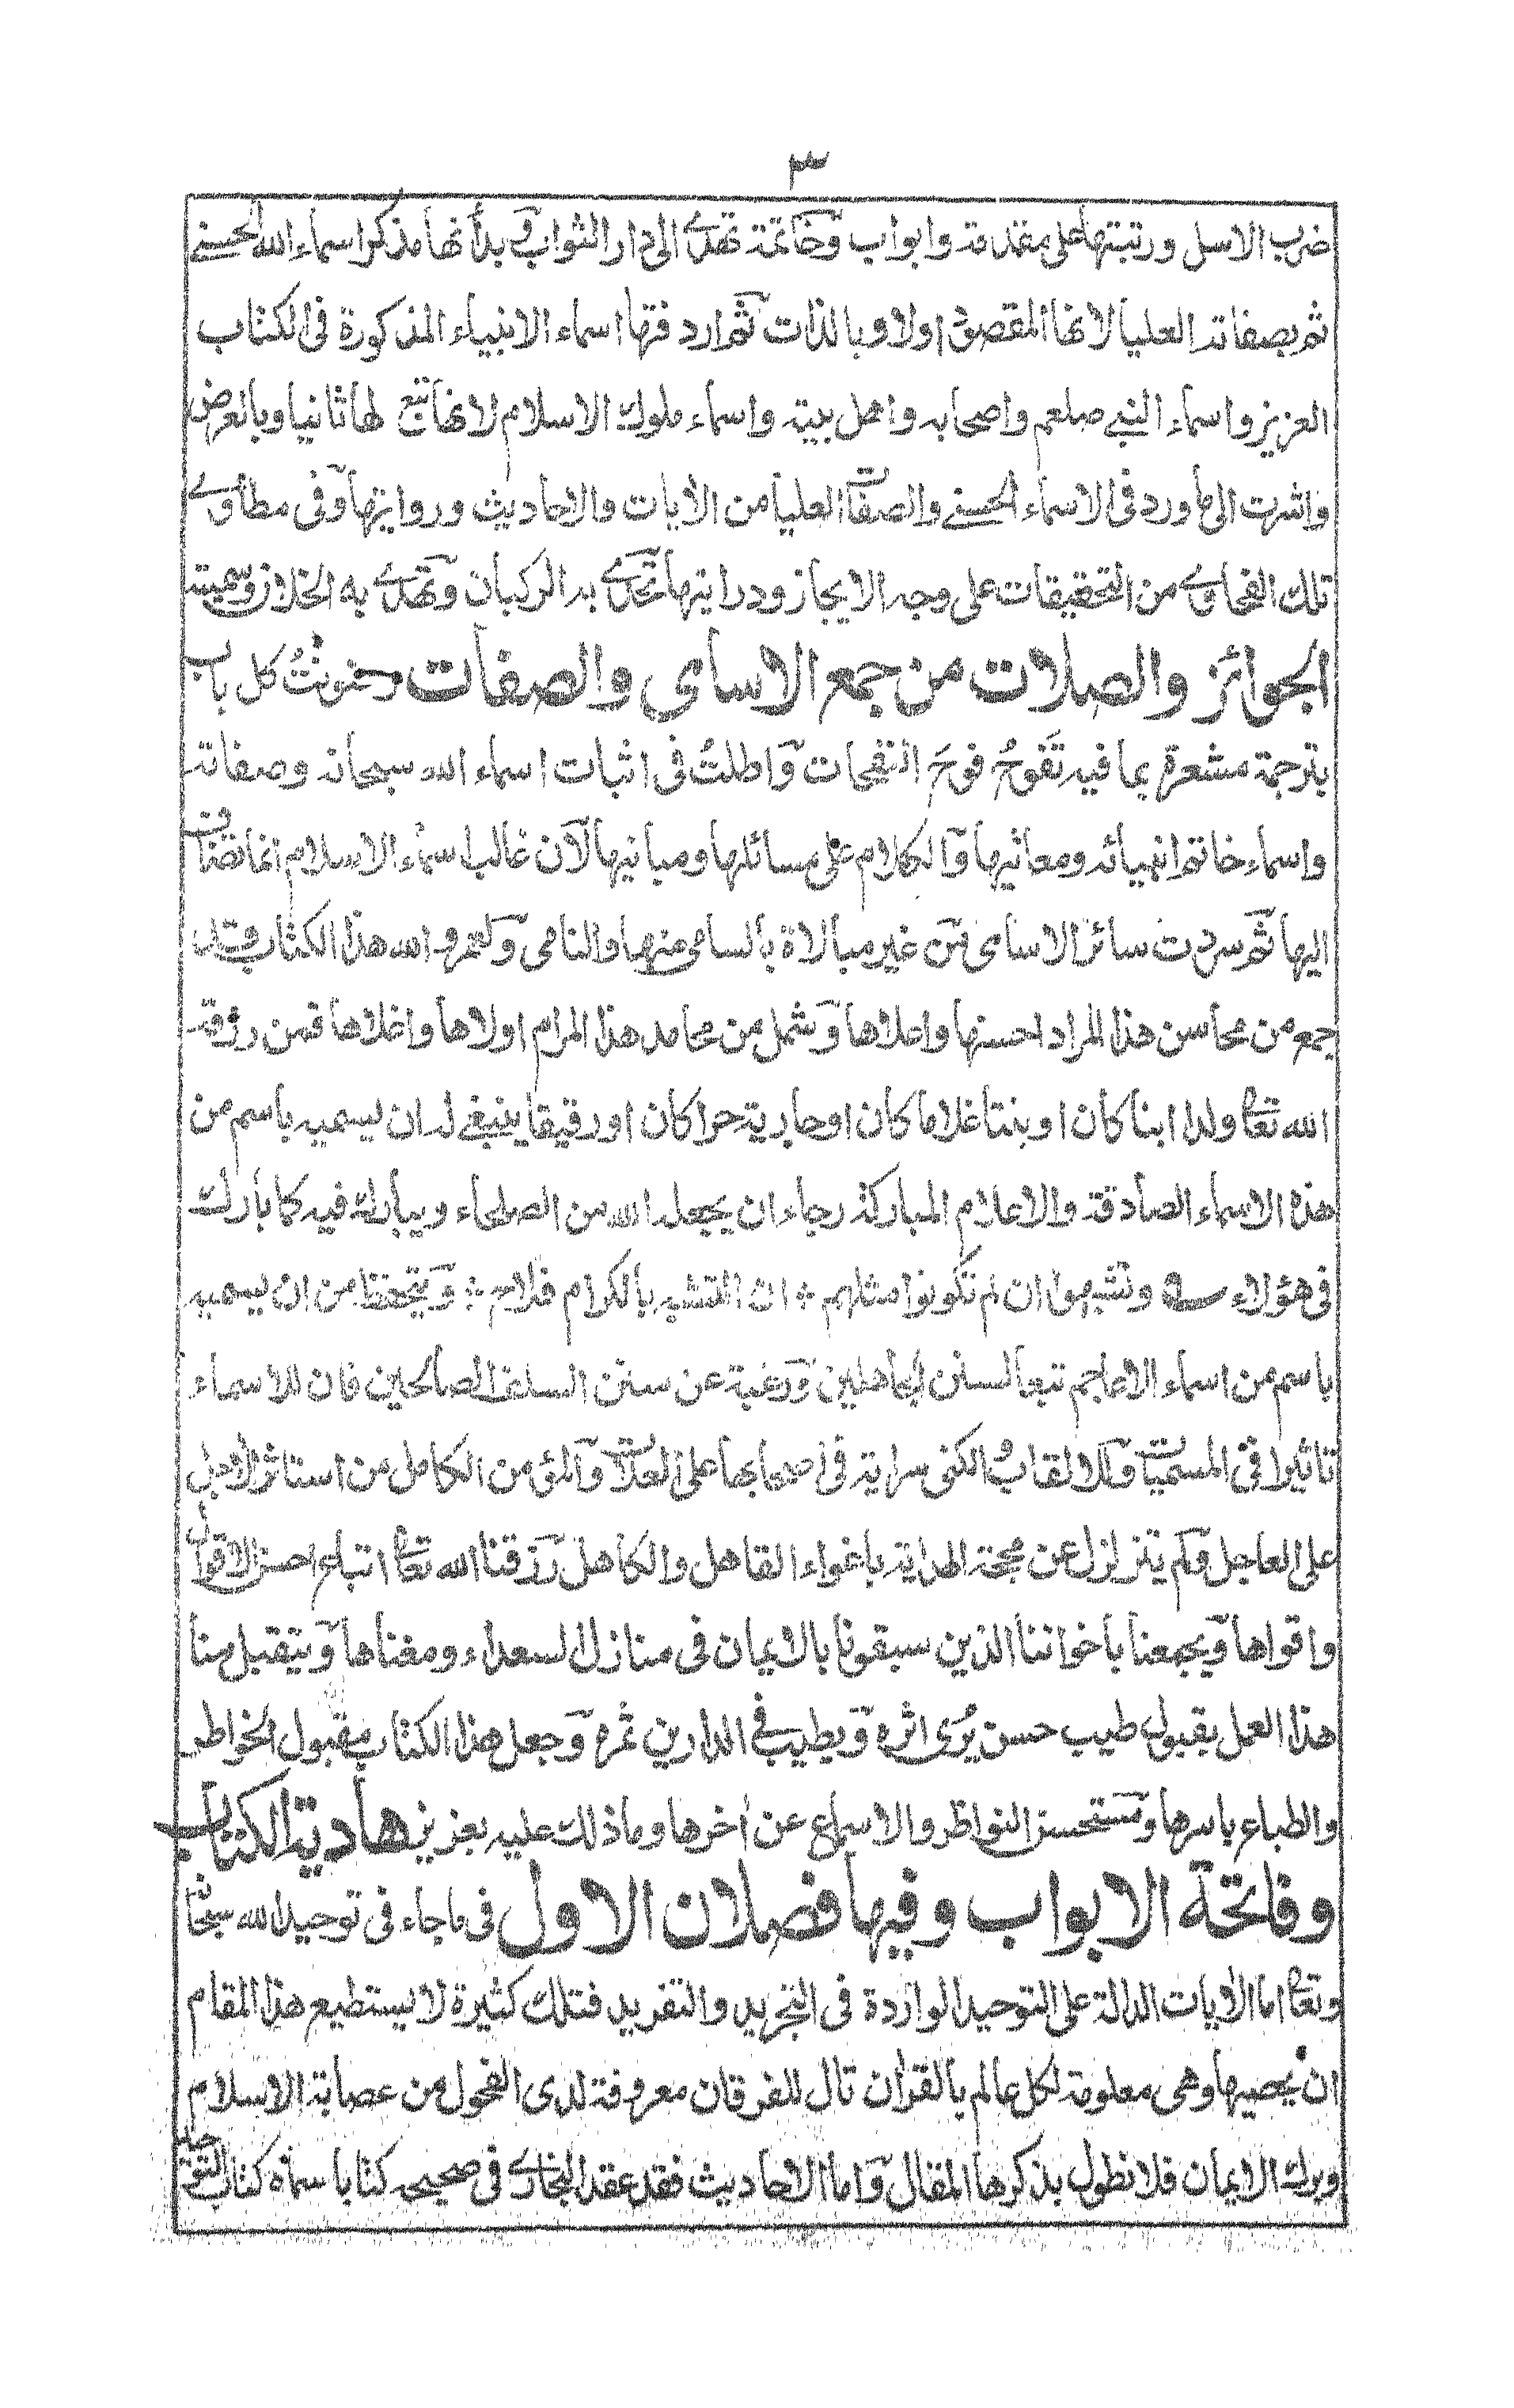 ٣
ضرب الاسل ورتبتها على مقدمة وابواب وخاتمة تهدى الى دار الثواب فى بدأتها مذكر اسماء الله الحسنے
ثم بصفاته العليا لانها المقصود اولا وبالذات ثم اردفتها اسماء الانبياء المذكورة فى الكتاب
العزيز واسماء النبے صلعم واصحابه واهل بيته واسماء ملوك الاسلام لانها تبع لها ثانيا وبالعرض
واشرت الى ما ورد فى الاسماء الحسنے والصفات العليا من الايات والاحاديث وروايتها وفى مطاوے
تلك الفحاوے من التحقيقات على وجه الايجاز ودرايتها تحدى به الركبان وتهدى به الخلان وسميته
الجوائز والصلات من جمع الاسامى والصفات وعنونتُ كل باب
بترجمة مشعرة بما فيه تَفوحُ فوحَ النفحات واطلتُ فى اثبات اسماء الله سبحانه وصفاته
واسماء خاتم انبيائه ومعانيها والكلام على مسائلها ومبانيها لان غالب اسماء الاسلام انما تضاف
اليها ثم سردت سائر الاسامى من غير مبالاة بالسامى منها والنامى ولعمرو الله هذا الكتاب قد
جمع من محاسن هذا المراد احسنها واعلاها وشمل من محامد هذا المرام اولاها واغلاها فمن رزقه
الله تعالى ولدا ابنا كان او بنتا غلاما كان او جارية حرا كان او رقيقا ينبغے له ان يسميه باسم من
هذه الاسماء الصادقة والاعلام المباركة رجاء ان يجعله الله من الصلحاء ويبارك فيه كما بارك
فى هؤلاء وتشبهوا ان لم تكونوا مثلهم ؞ ان التشبه بالكرام فلاح ؞ ويتحفظ من ان يسميه
باسم من اسماء الاعاجم تبعا لسنن الجاهلين ورغبة عن سنن السلف الصالحين فان للاسماء
تاثيرا فى المسميات وللالقاب والكنى سراية فى اصحابها على العلات والمؤمن الكامل من استاثر الاجل
على العاجل ولم يتزلزل عن محجة الهداية باغواء القاهل والكاهل رزقنا الله تعالى اتباع احسن الاقوال
واقواها ويجمعنا باخواننا الذين سبقونا بالايمان فى منازل السعداء ومغناها ويتقبل منا
هذا العمل بقبول طيب حسن يُرى اثره ويطيب فى الدارين ثمره وجعل هذا الكتاب مقبول الخواطر
والطباع باسرها ومستحسن النواظر والاسماع عن اخرها وما ذلك عليه بعزيز هادية الكتاب
وفاتحة الابواب وفيها فصلان الاول فى ما جاء فى توحيد الله سبحانه
وتعالى اما الايات الدالة على التوحيد الواردة فى التجريد والتفريد فتلك كثيرة لا يستطيع هذا المقام
ان يحصيها وهى معلومة لكل عالم بالقران تال للفرقان معروفة لدى الفحول من عصابة الاسلام
وبرك الايمان فلا نطول بذكرها المقال واما الاحاديث فقد عقد البخارى فى صحيحه كتابا سماه كتاب التوحيد